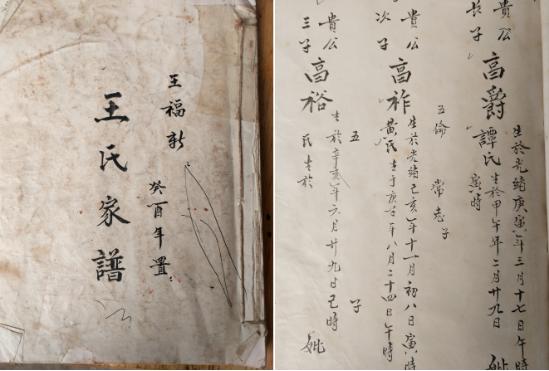 王福新
王氏家譜
癸酉年置
貴公
長子
高爵
生於光緒庚寅年三月十七日午時
譚氏生於甲午年二月廿九日
寅時
妣
五倫
常志子
貴公
次子
高祚
生於光緒己亥年十一月初八日寅時
黄氏生于庚子年八月二十四日午時
貴公
三子
高裕
五
子
生於辛亥年六月廿九日巳時
氏生於
妣